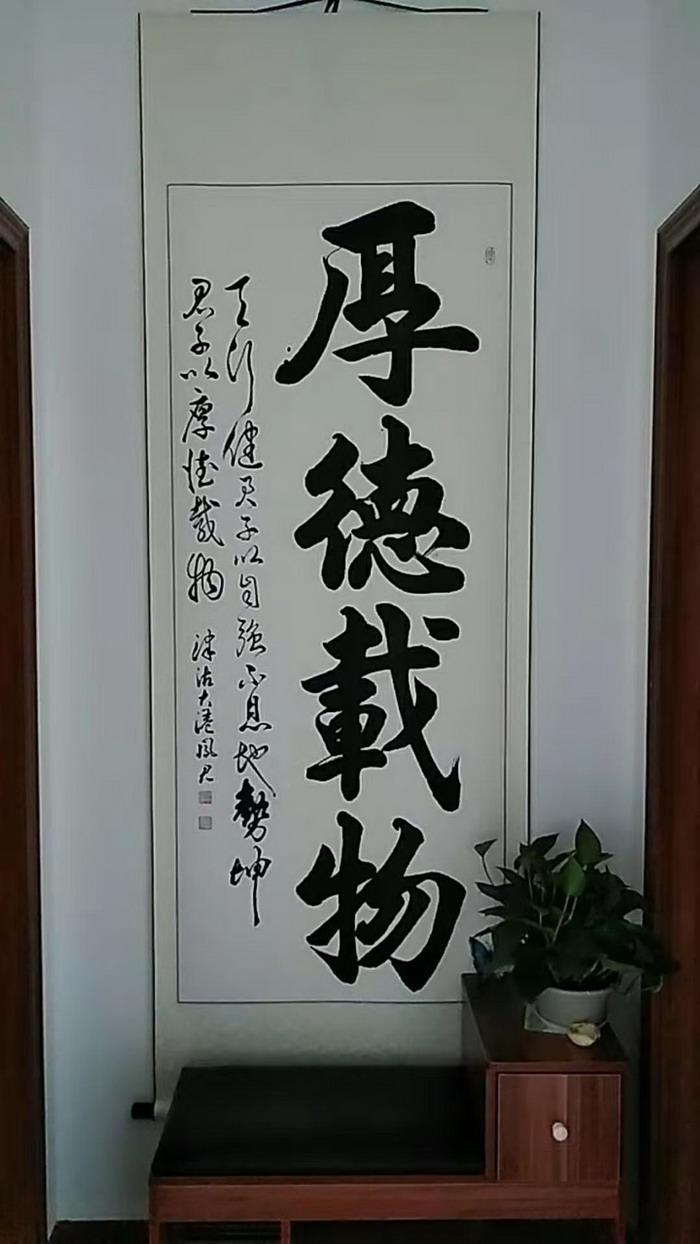 厚德載物
天行健君子以自強不息地勢坤
君子以厚德載物
津沽大港鳳君